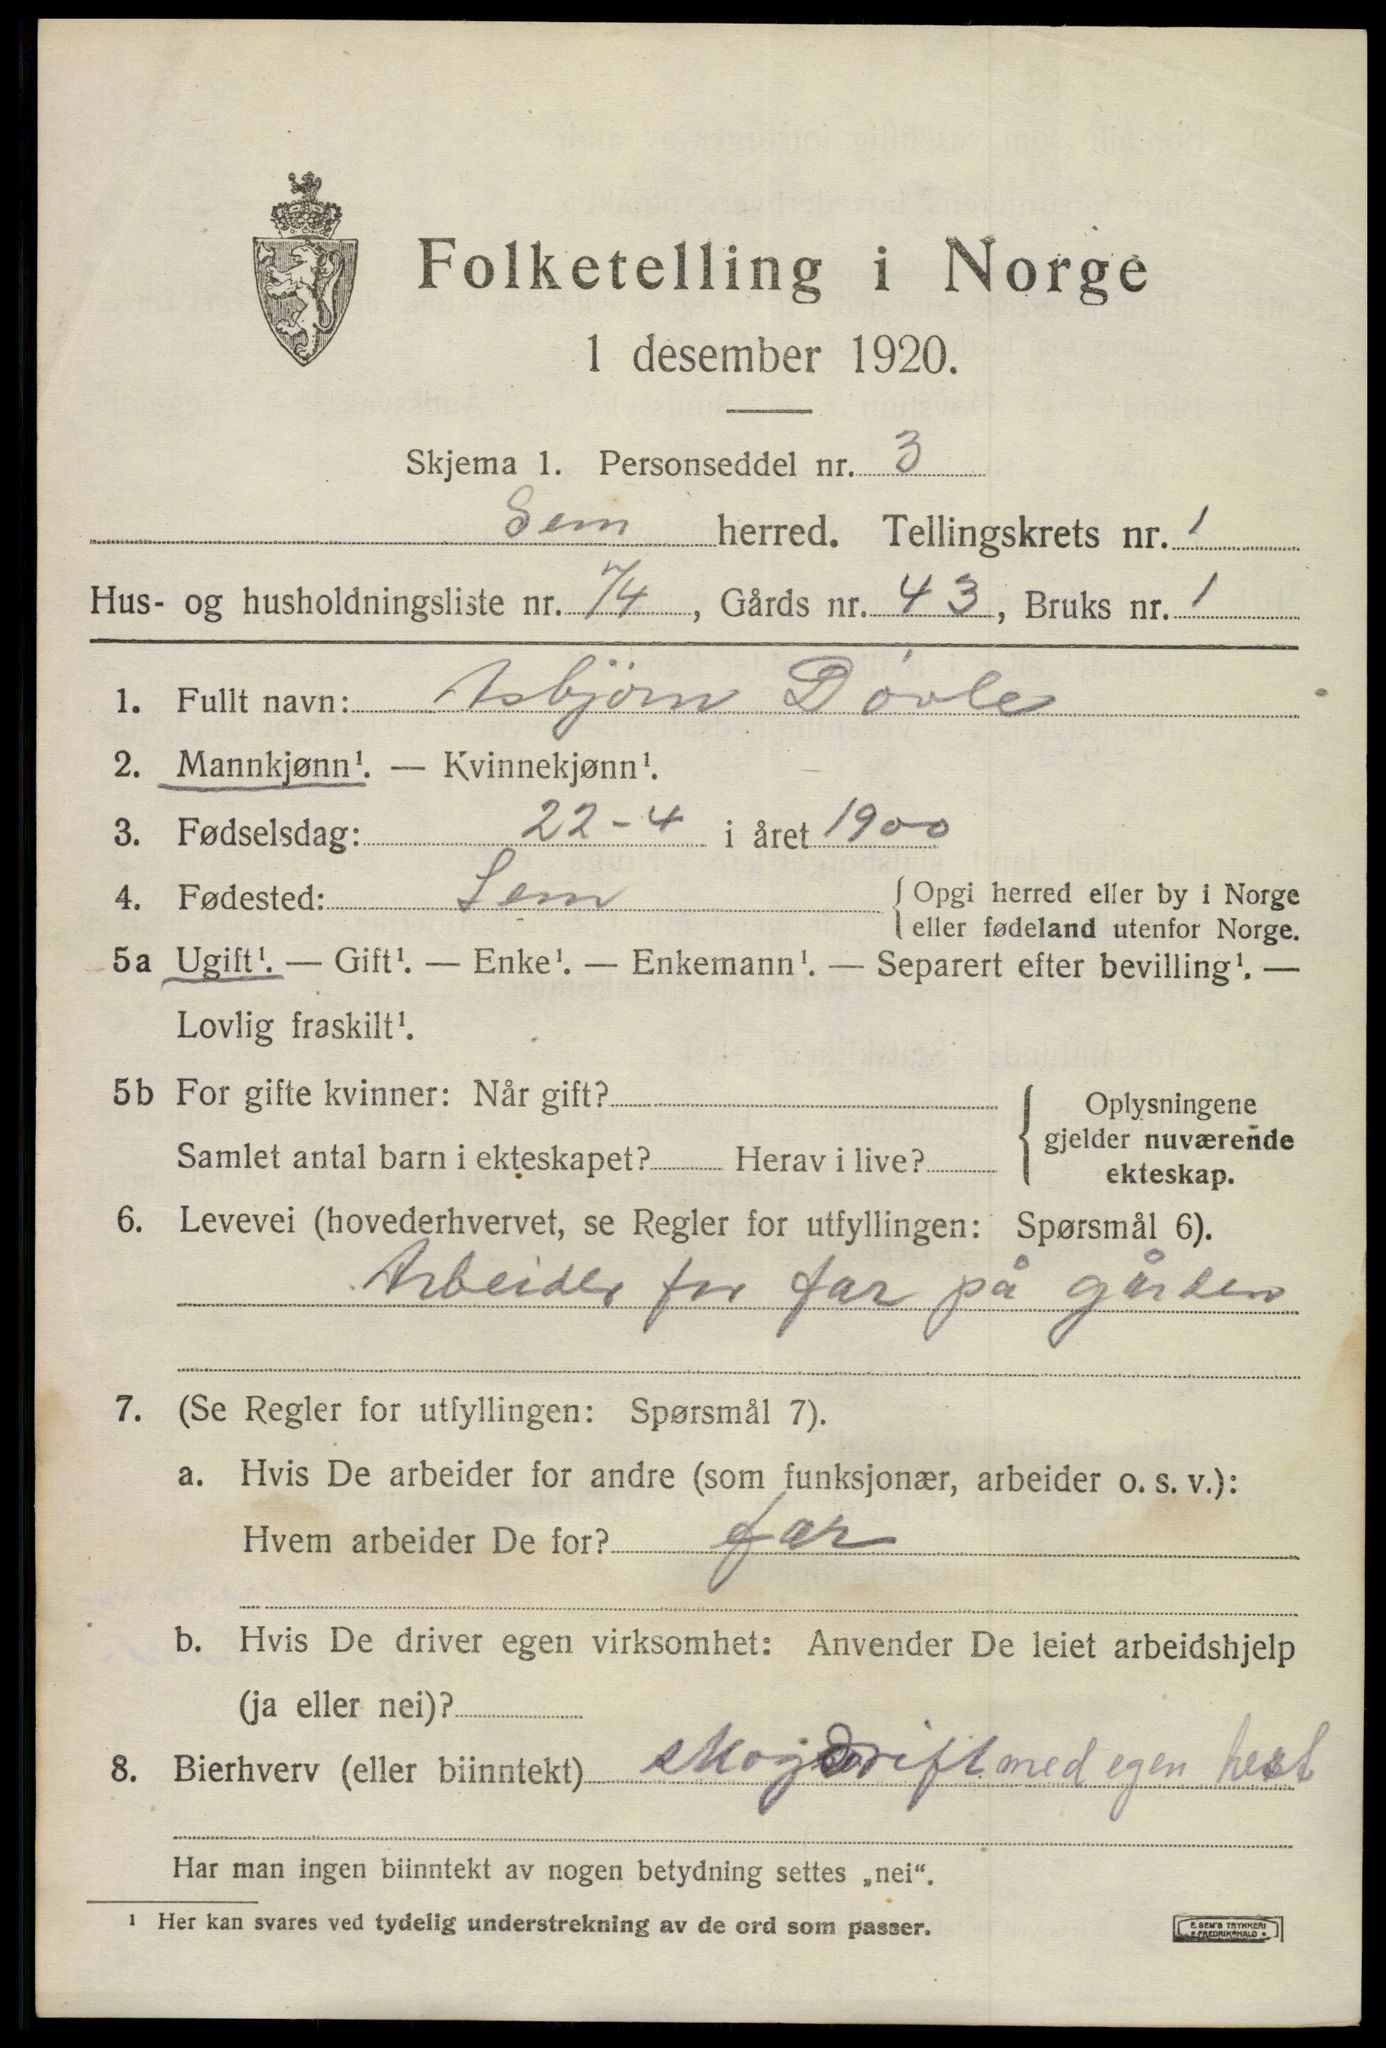 Folketelling i Norge
1 desember 1920.
Skjema 1. Personseddel nr. 3
Sem herred. Tellingskrets nr. 1
Hus- og husholdningsliste nr. 74, Gårds nr. 43, Bruks nr. 1
1. Fullt navn: Asbjörn Døvle
2. Mannkjønn¹. — Kvinnekjønn¹.
3. Fødselsdag: 22-4 i året 1900
4. Fødested: Sem { Opgi herred eller by i Norge
eller fødeland utenfor Norge.
5a Ugift¹. — Gift¹. — Enke¹. — Enkemann¹. — Separert efter bevilling¹. —
Lovlig fraskilt¹.
5b For gifte kvinner: Når gift?
Samlet antal barn i ekteskapet? Herav i live?
{ Oplysningene
gjelder nuværende
ekteskap.
6. Levevei (hovederhvervet, se Regler for utfyllingen: Spørsmål 6).
Arbeider for far på gården
7. (Se Regler for utfyllingen: Spørsmål 7).
a. Hvis De arbeider for andre (som funksjonær, arbeider o. s. v.):
Hvem arbeider De for? far
b. Hvis De driver egen virksomhet: Anvender De leiet arbeidshjelp
(ja eller nei)?
8. Bierhverv (eller biinntekt) skogdrift med egen hest
Har man ingen biinntekt av nogen betydning settes „nei“.
¹ Her kan svares ved tydelig understrekning av de ord som passer.
E. SEM'S TRYKKERI
FREDRIKSHALD